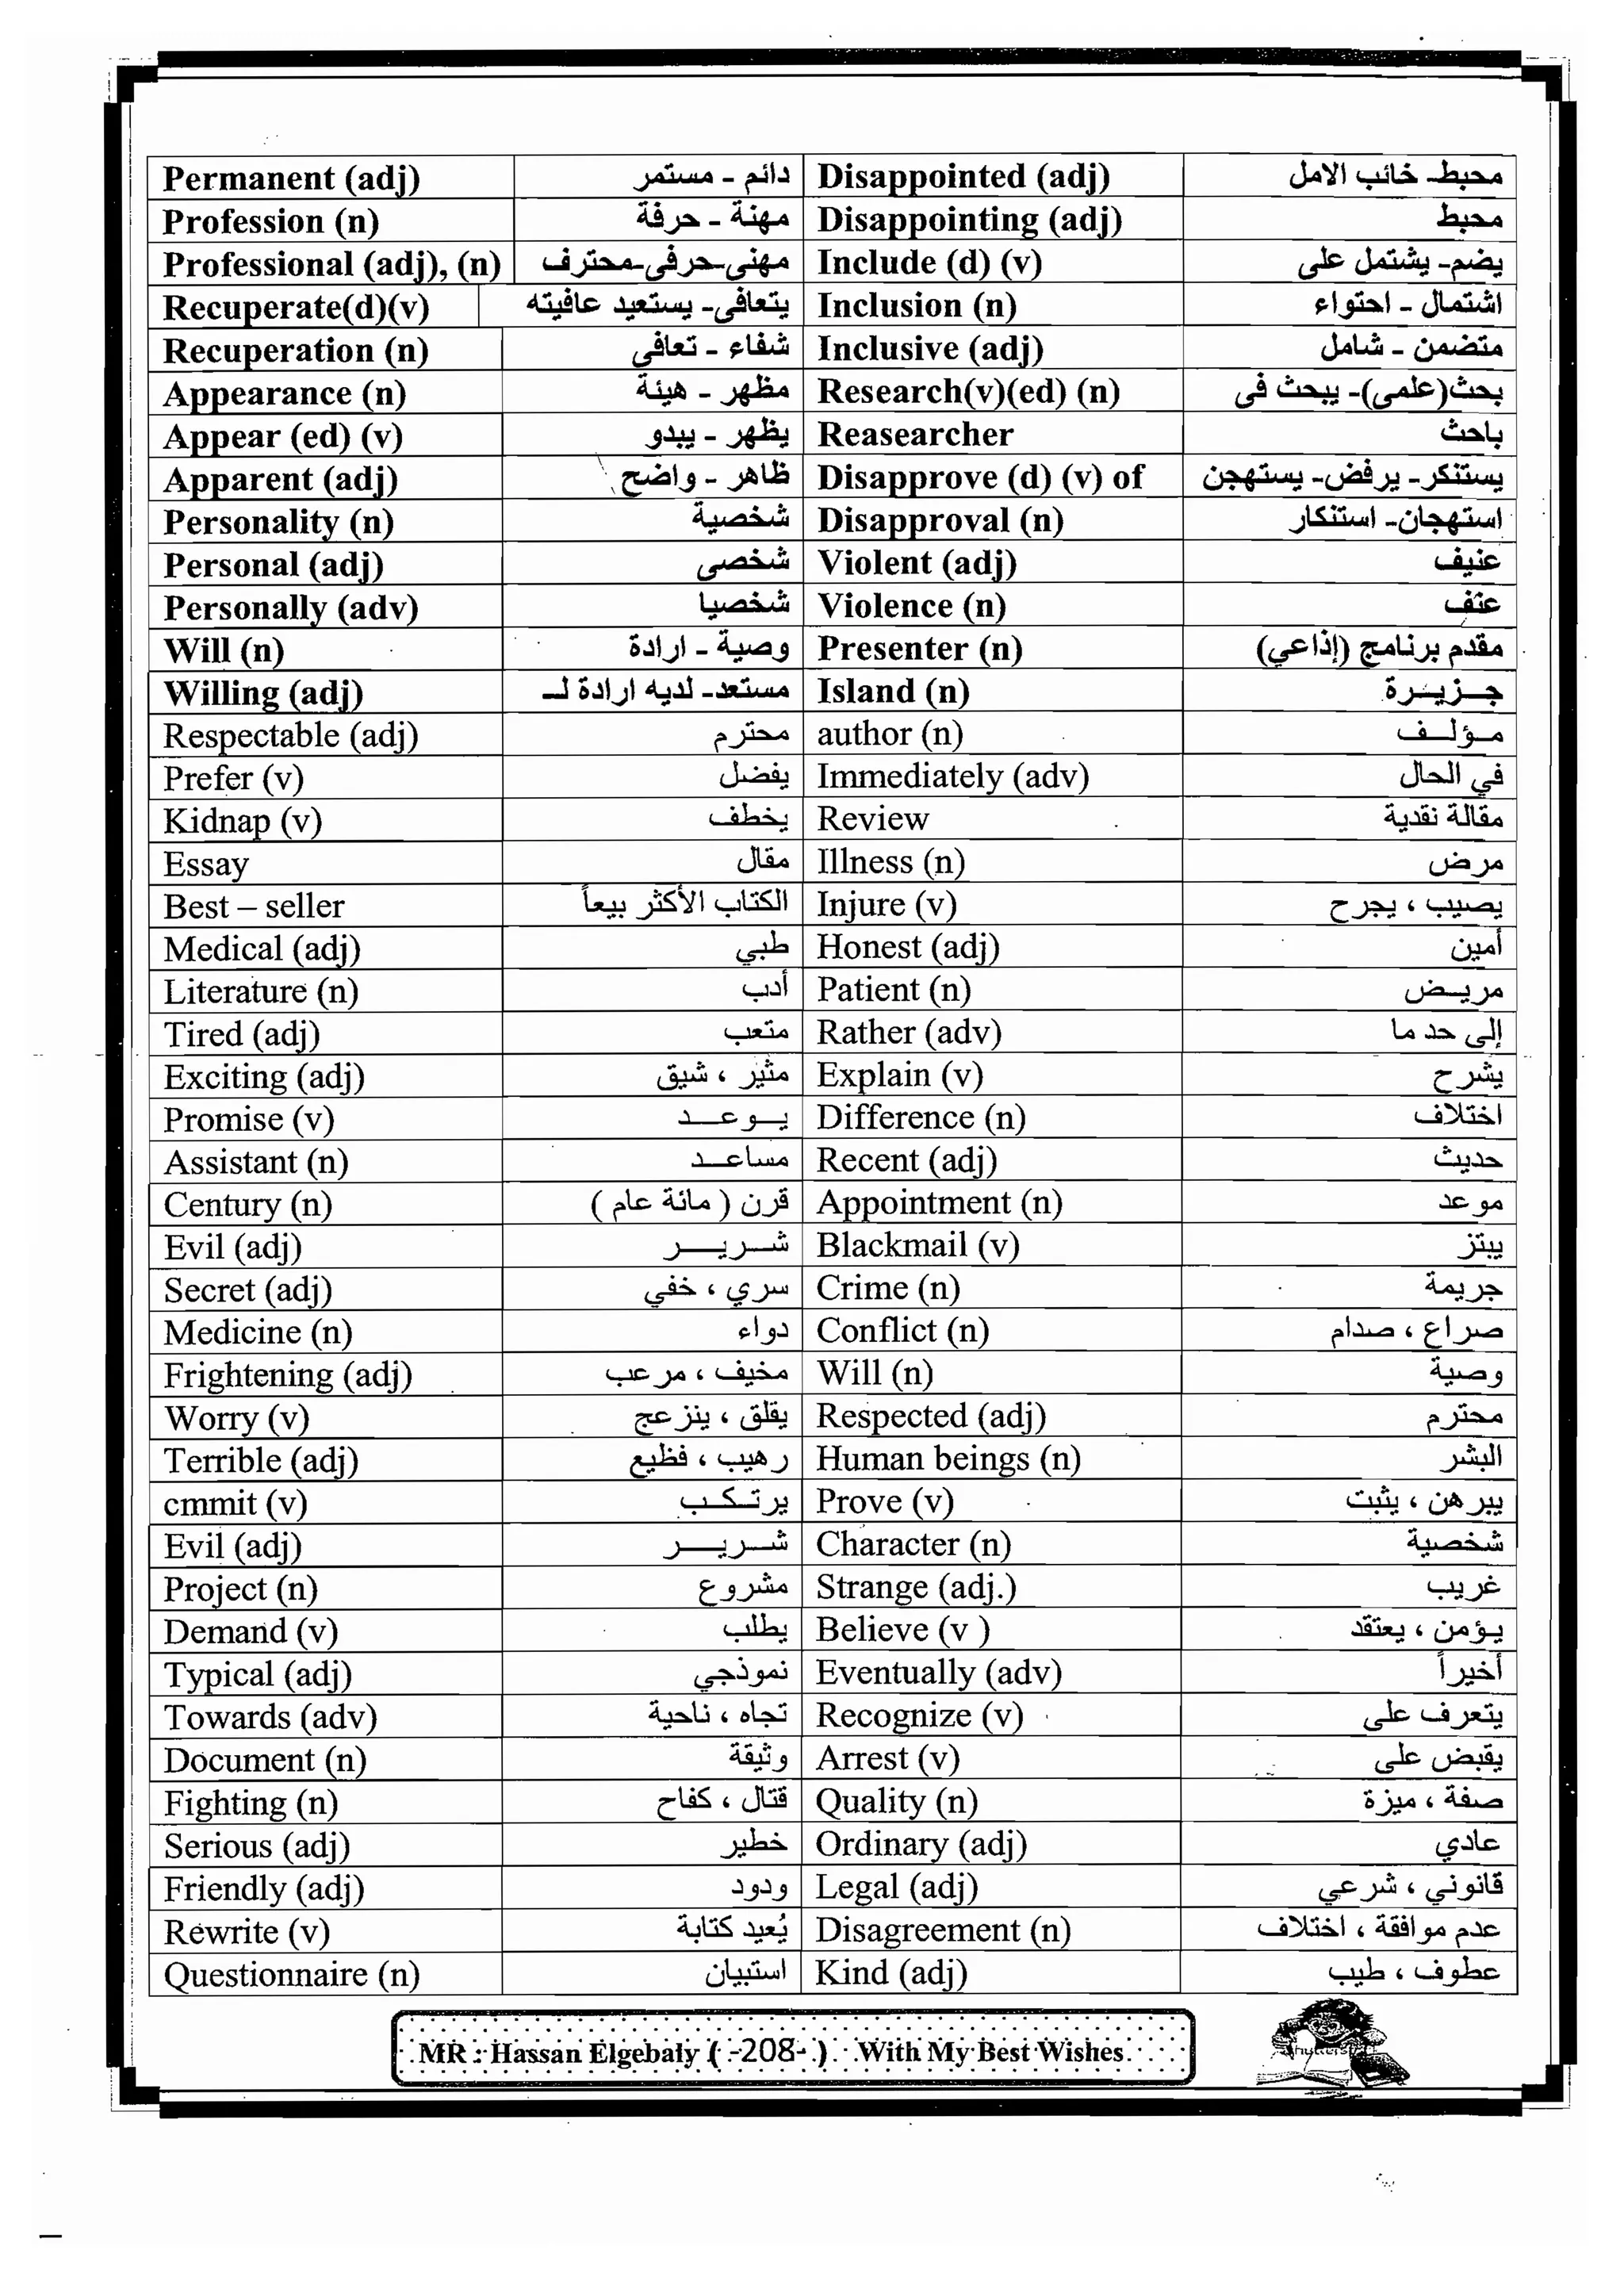 Permanent (adj) دائم - مستمر Disappointed (adj) محبط- خائب الامل
Profession (n) مهنة - حرفة Disappointing (adj) محبط
Professional (adj), (n) مهنى-حرفى-محترف Include (d) (v) يضم- يشتمل على
Recuperate(d)(v) يتعافى- يستعيد عافيته Inclusion (n) اشتمال - احتواء
Recuperation (n) شفاء - تعافى Inclusive (adj) متضمن - شامل
Appearance (n) مظهر - هيئة Research(v)(ed) (n) بحث(علمى)- يبحث فى
Appear (ed) (v) يظهر - يبدو Reasearcher باحث
Apparent (adj) ظاهر - واضح Disapprove (d) (v) of يستنكر- يرفض- يستهجن
Personality (n) شخصية Disapproval (n) استهجان- استنكار
Personal (adj) شخصى Violent (adj) عنيف
Personally (adv) شخصيا Violence (n) عنف
Will (n) وصية - ارادة Presenter (n) مقدم برنامج (إذاعي)
Willing (adj) مستعد- لديه ارادة لـ Island (n) جـزيـرة
Respectable (adj) محترم author (n) مـؤلـف
Prefer (v) يفضل Immediately (adv) في الحال
Kidnap (v) يخطف Review مقالة نقدية
Essay مقال Illness (n) مرض
Best – seller الكتاب الأكثر بيعاً Injure (v) يصيب ، يجرح
Medical (adj) طبي Honest (adj) أمين
Literature (n) أدب Patient (n) مريـض
Tired (adj) متعب Rather (adv) إلى حد ما
Exciting (adj) مثير ، شيق Explain (v) يشرح
Promise (v) يـوعـد Difference (n) اختلاف
Assistant (n) مساعـد Recent (adj) حديث
Century (n) قرن ( مائة عام ) Appointment (n) موعد
Evil (adj) شـريـر Blackmail (v) يبتز
Secret (adj) سري ، خفي Crime (n) جريمة
Medicine (n) دواء Conflict (n) صراع ، صدام
Frightening (adj) مخيف ، مرعب Will (n) وصية
Worry (v) يقلق ، ينزعج Respected (adj) محترم
Terrible (adj) رهيب ، فظيع Human beings (n) البشر
cmmit (v) يرتـكـب Prove (v) يبرهن ، يثبت
Evil (adj) شـريـر Character (n) شخصية
Project (n) مشروع Strange (adj.) غريب
Demand (v) يطلب Believe (v ) يـؤمن ، يعتقد
Typical (adj) نموذجي Eventually (adv) أخيراً
Towards (adv) تجاه ، ناحية Recognize (v) يتعرف على
Document (n) وثيقة Arrest (v) يقبض على
Fighting (n) قتال ، كفاح Quality (n) صفة ، ميزة
Serious (adj) خطير Ordinary (adj) عادي
Friendly (adj) ودود Legal (adj) قانوني ، شرعي
Rewrite (v) يُعيد كتابة Disagreement (n) عدم موافقة ، اختلاف
Questionnaire (n) استبيان Kind (adj) عطوف ، طيب
MR : Hassan Elgebaly ( -208- ) With My Best Wishes